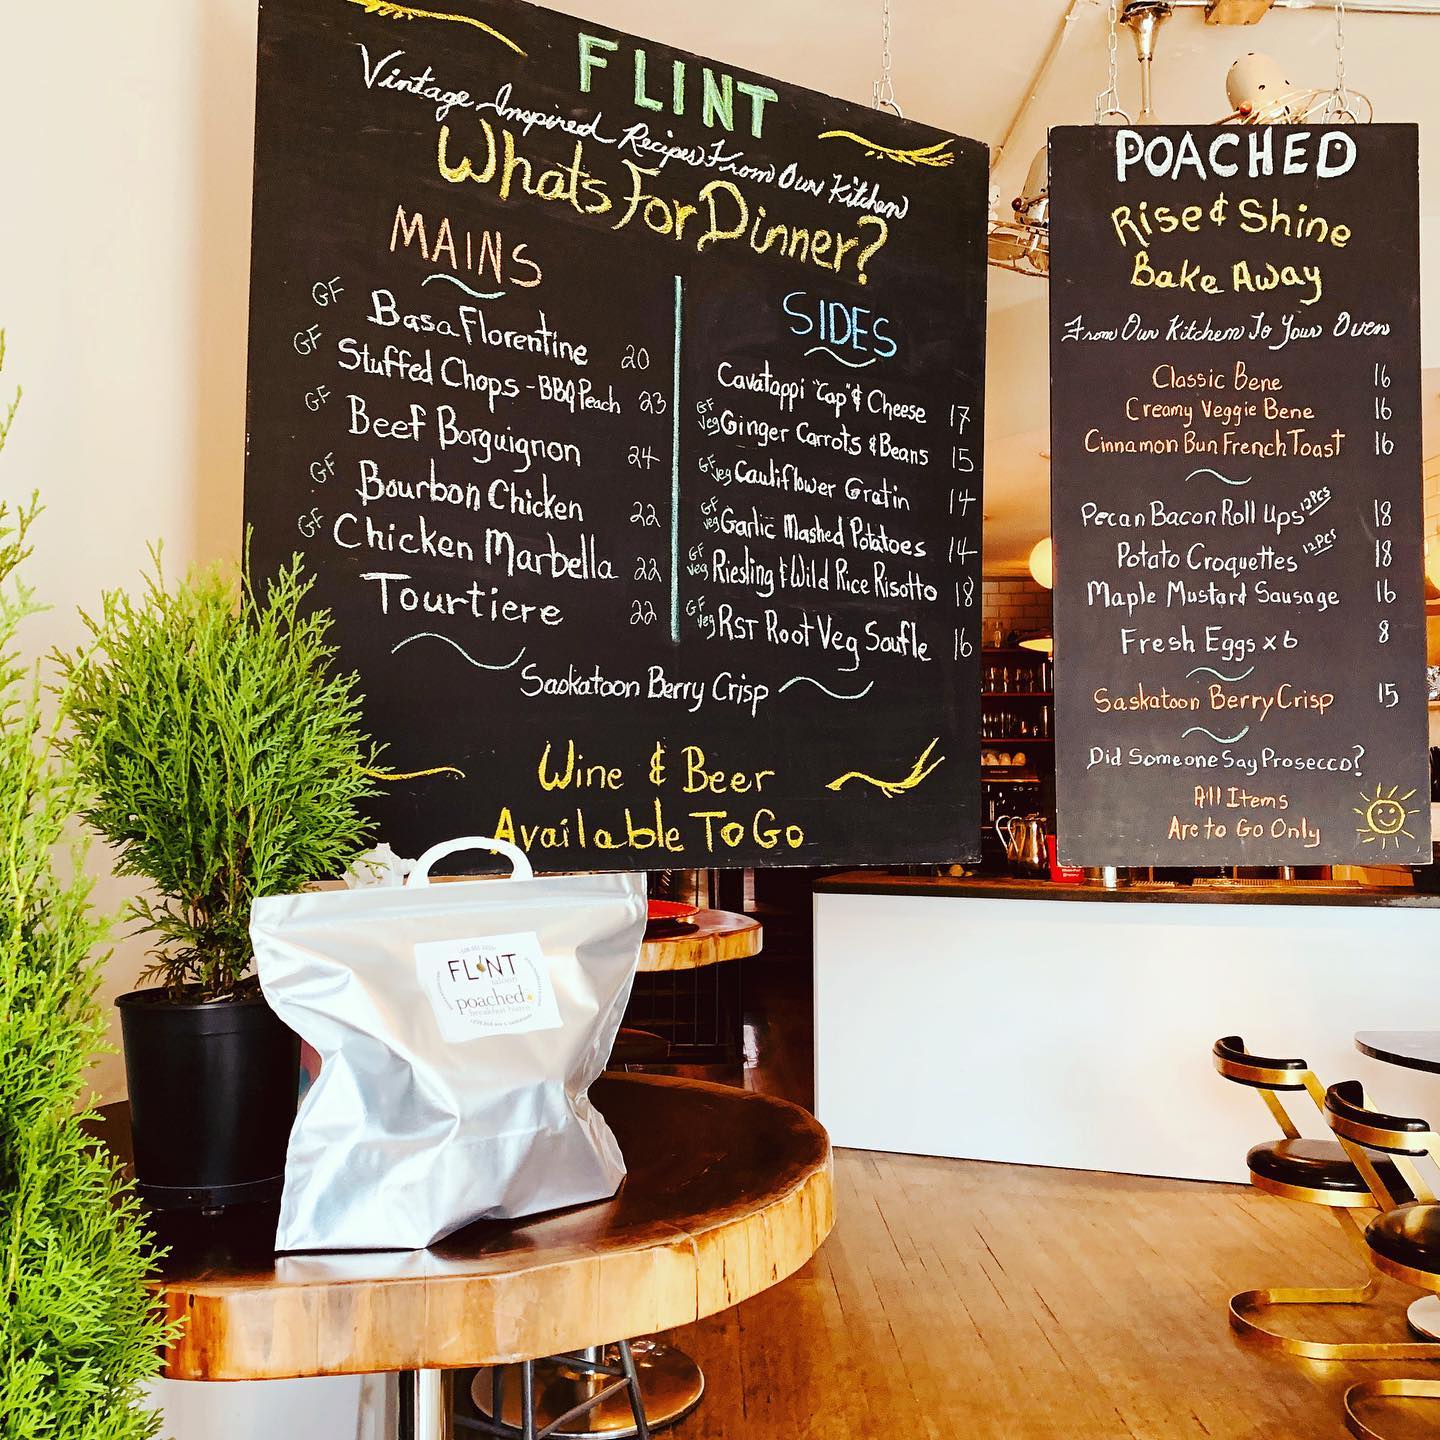 FLINT
Vintage Inspired Recipes From Our Kitchen
Whats For Dinner?
MAINS
GF Basa Florentine 20
GF Stuffed Chops - BBQ Peach 23
GF Beef Borguignon 24
GF Bourbon Chicken 22
GF Chicken Marbella 22
Tourtiere 22
SIDES
Cavatappi "Cap" & Cheese 17
GF Veg Ginger Carrots & Beans 15
GF Veg Cauliflower Gratin 14
GF Veg Garlic Mashed Potatoes 14
GF Veg Riesling & Wild Rice Risotto 18
GF Veg RST Root Veg Soufle 16
Saskatoon Berry Crisp
Wine & Beer
Available To Go
POACHED
Rise & Shine
Bake Away
From Our Kitchen To Your Oven
Classic Bene 16
Creamy Veggie Bene 16
Cinnamon Bun French Toast 16
Pecan Bacon Roll Ups 12 Pcs 18
Potato Croquettes 12 Pcs 18
Maple Mustard Sausage 16
Fresh Eggs x 6 8
Saskatoon Berry Crisp 15
Did Someone Say Prosecco?
All Items
Are to Go Only
FLINT
saloon
poached
breakfast bistro